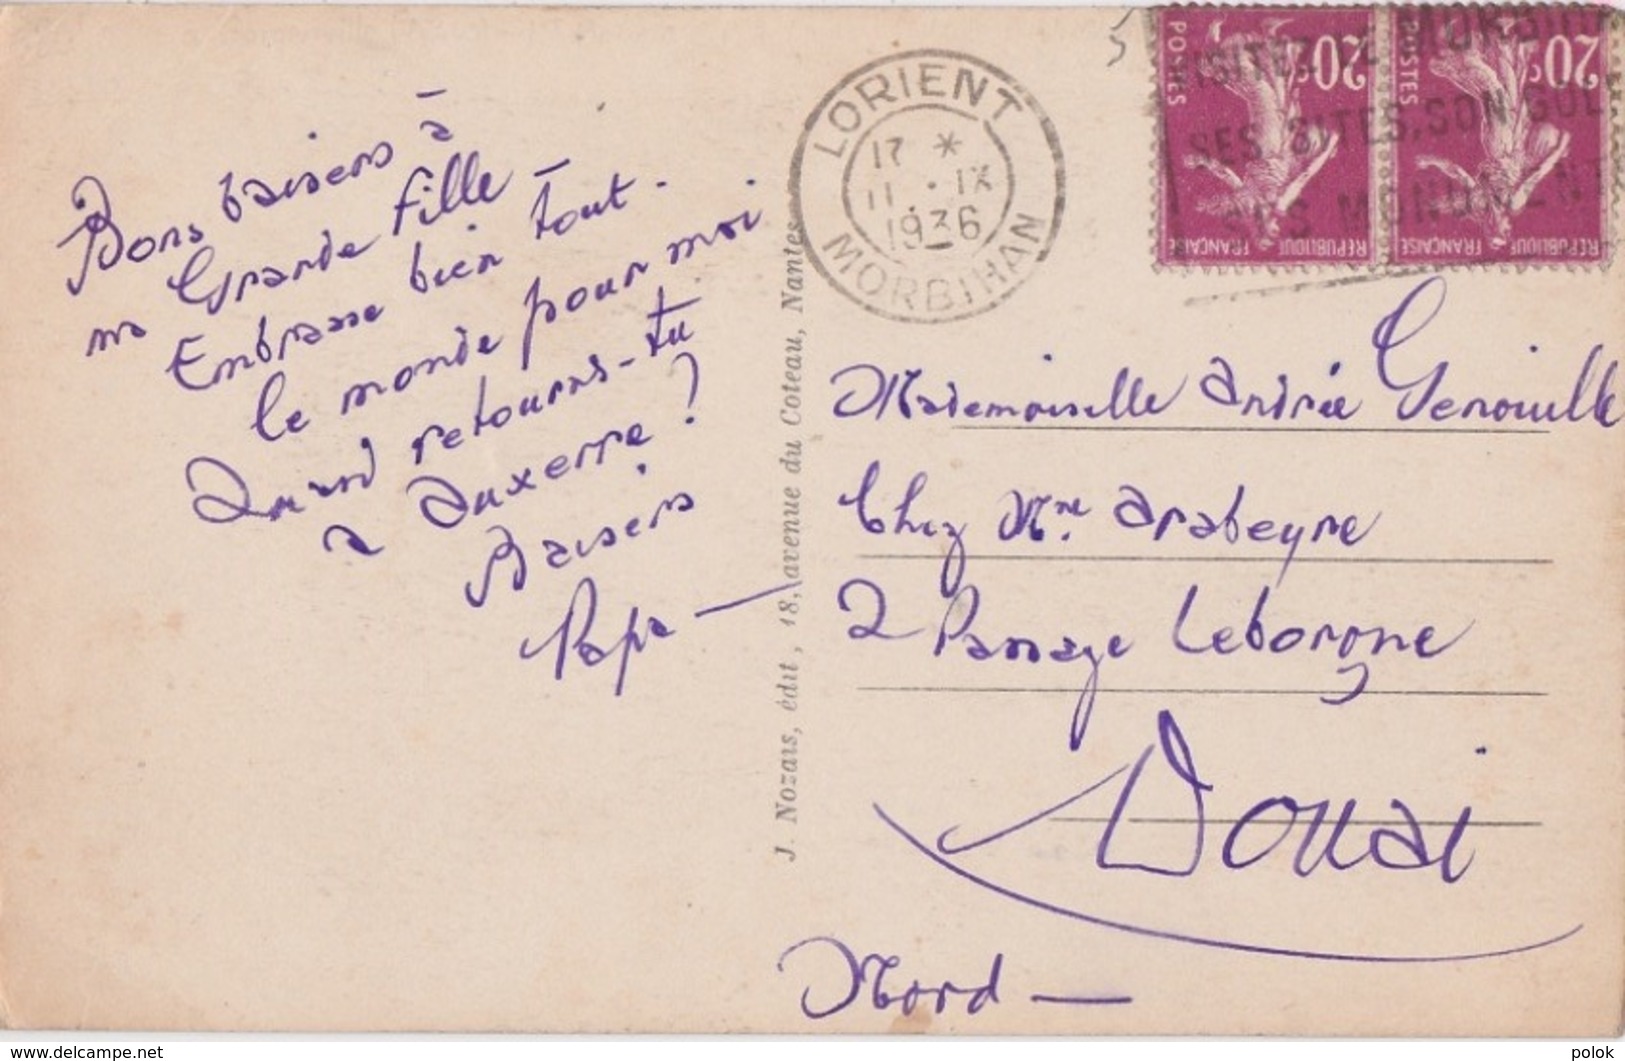 Bons baisers à
ma Grande fille –
Embrasse bien tout
le monde pour moi.
Quand retournes-tu
à Auxerre ?
Baisers
Papa —
J. Nozais, édit, 18, avenue du Coteau, Nantes
5
LORIENT
17 *
11 . IX
1936
MORBIHAN
VISITEZ LE MORBIHAN
SES SITES, SON GOLFE
SES MONUMENTS
20c
POSTES
REPUBLIQUE FRANÇAISE
20c
POSTES
REPUBLIQUE FRANÇAISE
Mademoiselle Andrée Genouille
Chez Mme Arabeyre
2 Passage Leborgne
Douai
Nord —
www.delcampe.net
polok